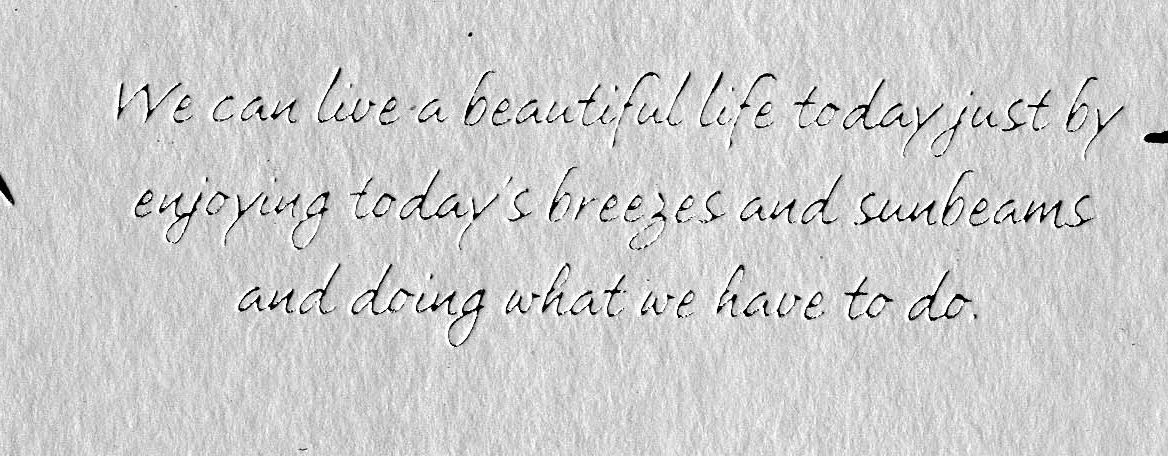 We can live a beautiful life today just by
enjoying today's breezes and sunbeams
and doing what we have to do.